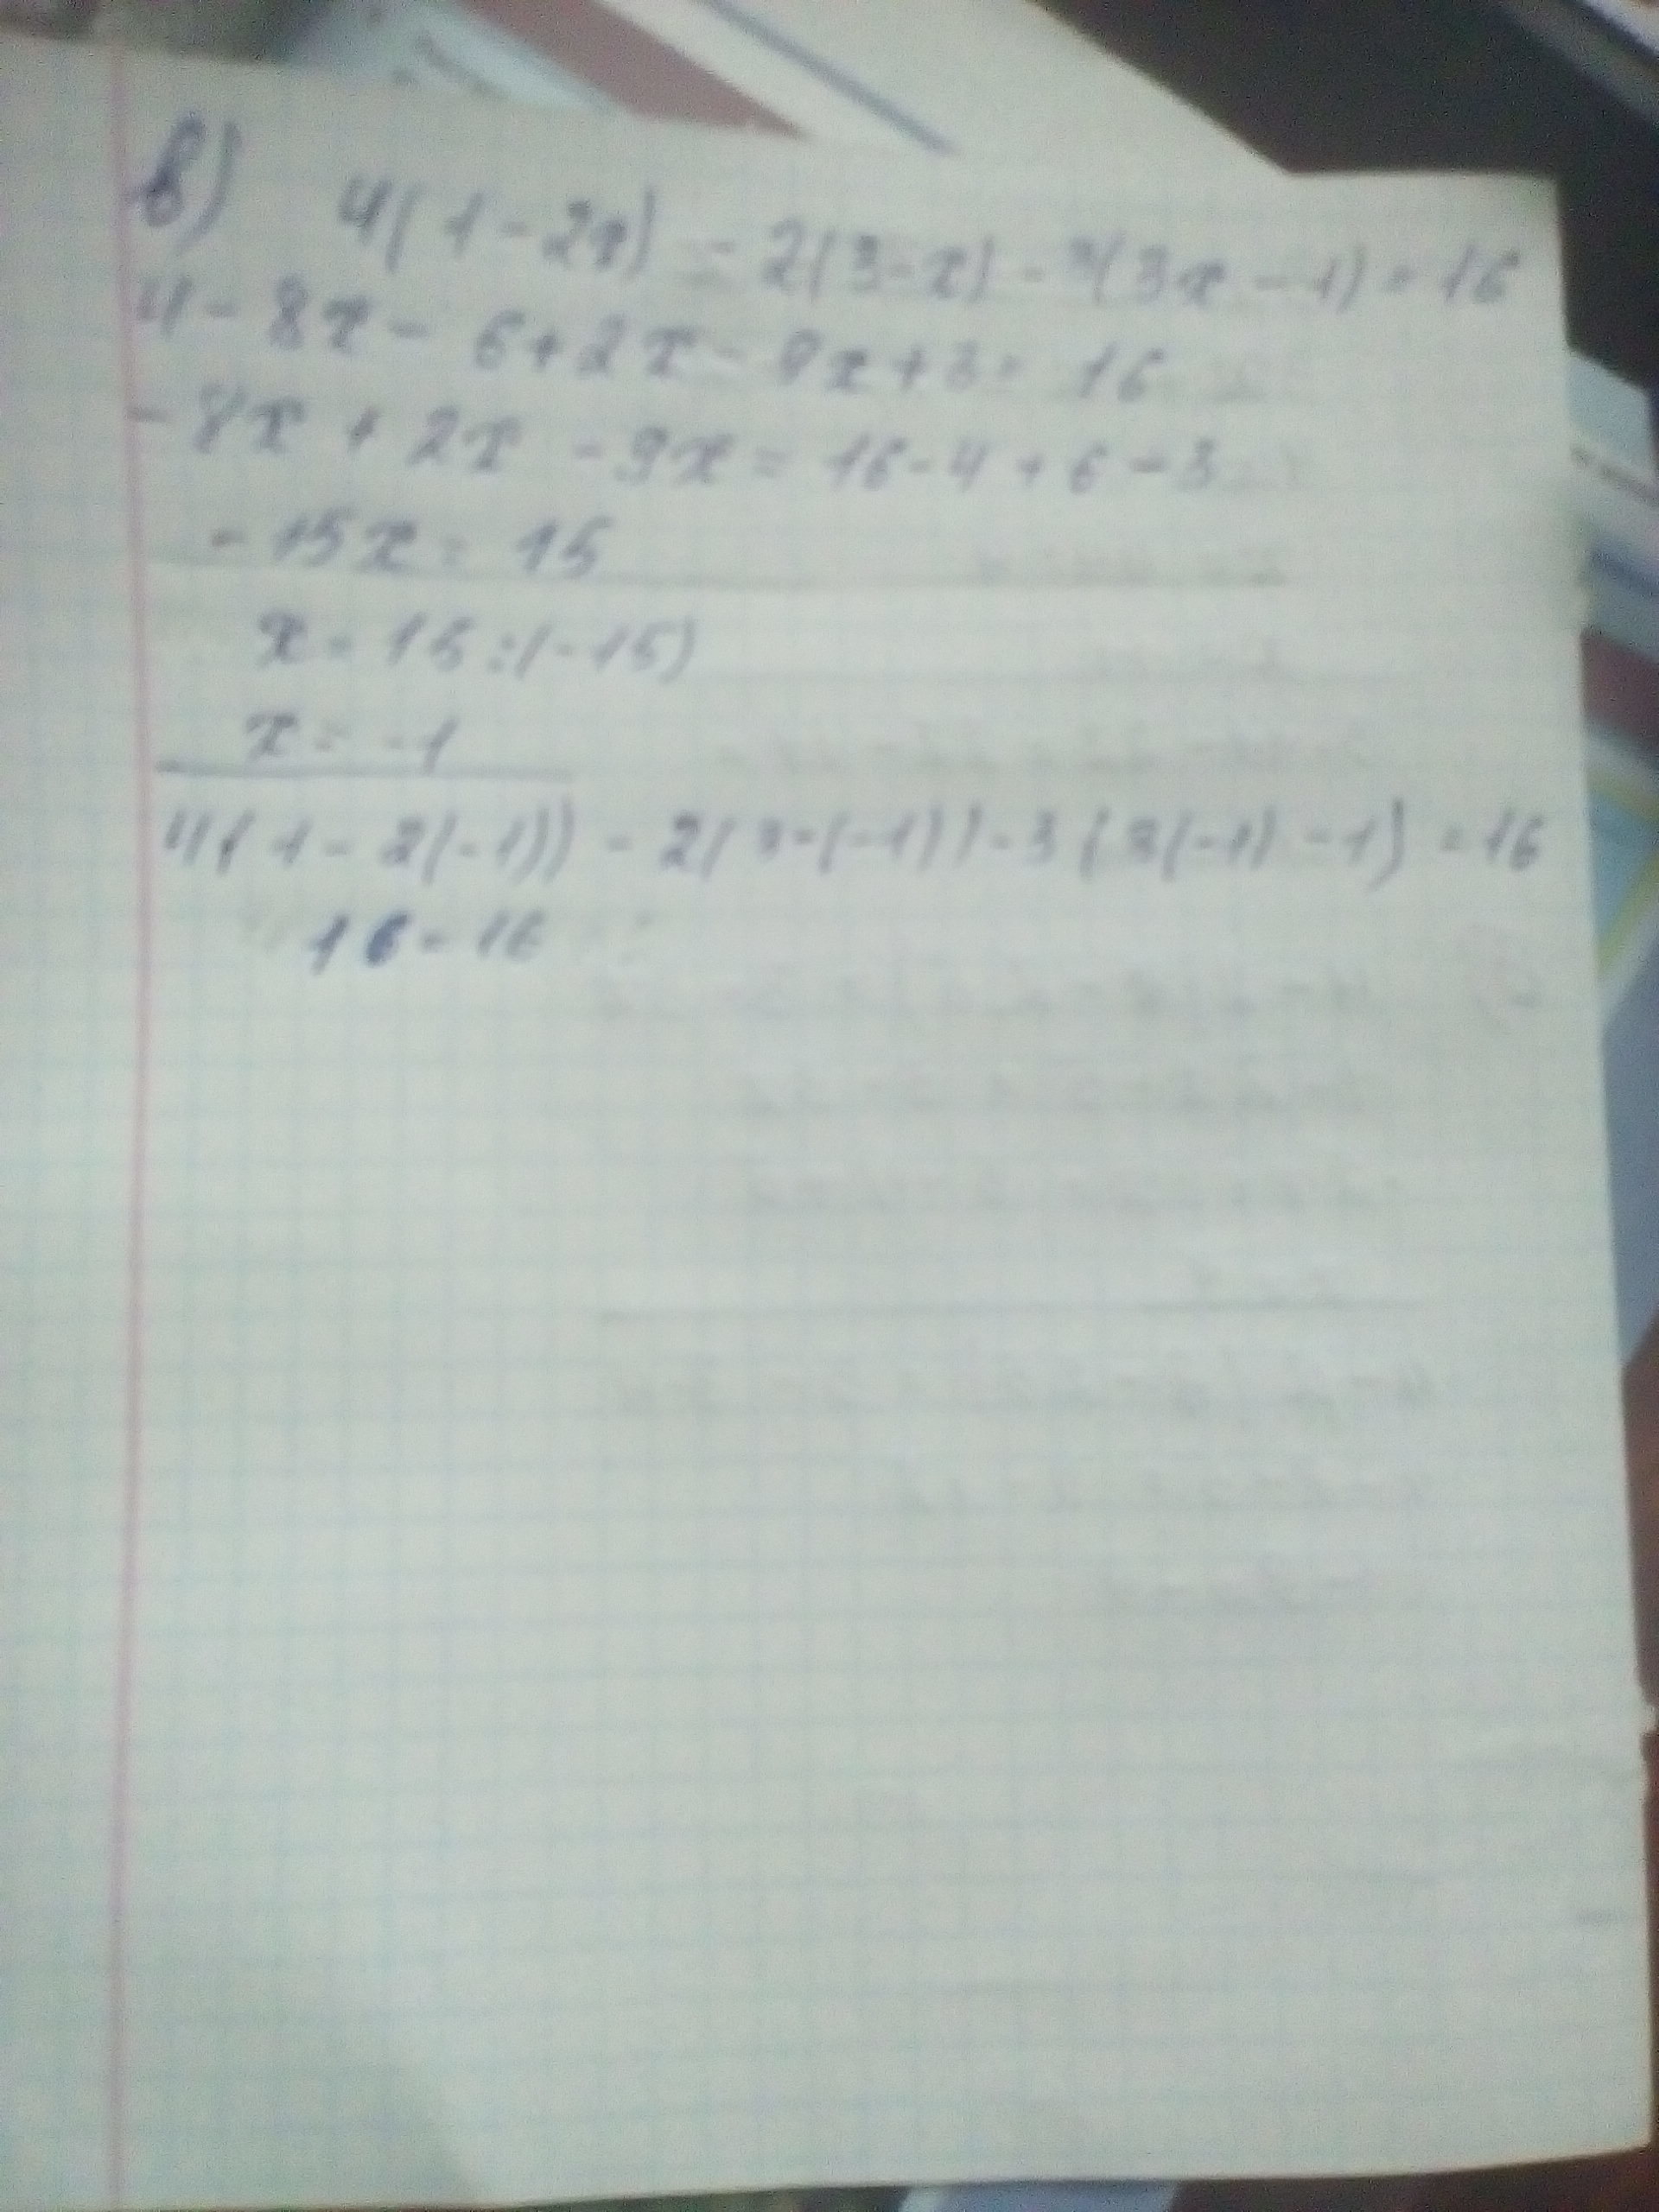 в) 4(1-2x) = 2(3-x) - 3(3x-1) = 16
4 - 8x - 6 + 2x - 9x + 3 = 16
- 8x + 2x - 9x = 16 - 4 + 6 - 3
- 15x = 15
x = 15 : (-15)
x = -1
4(1 - 2(-1)) - 2(3-(-1)) - 3(3(-1) - 1) = 16
16 = 16